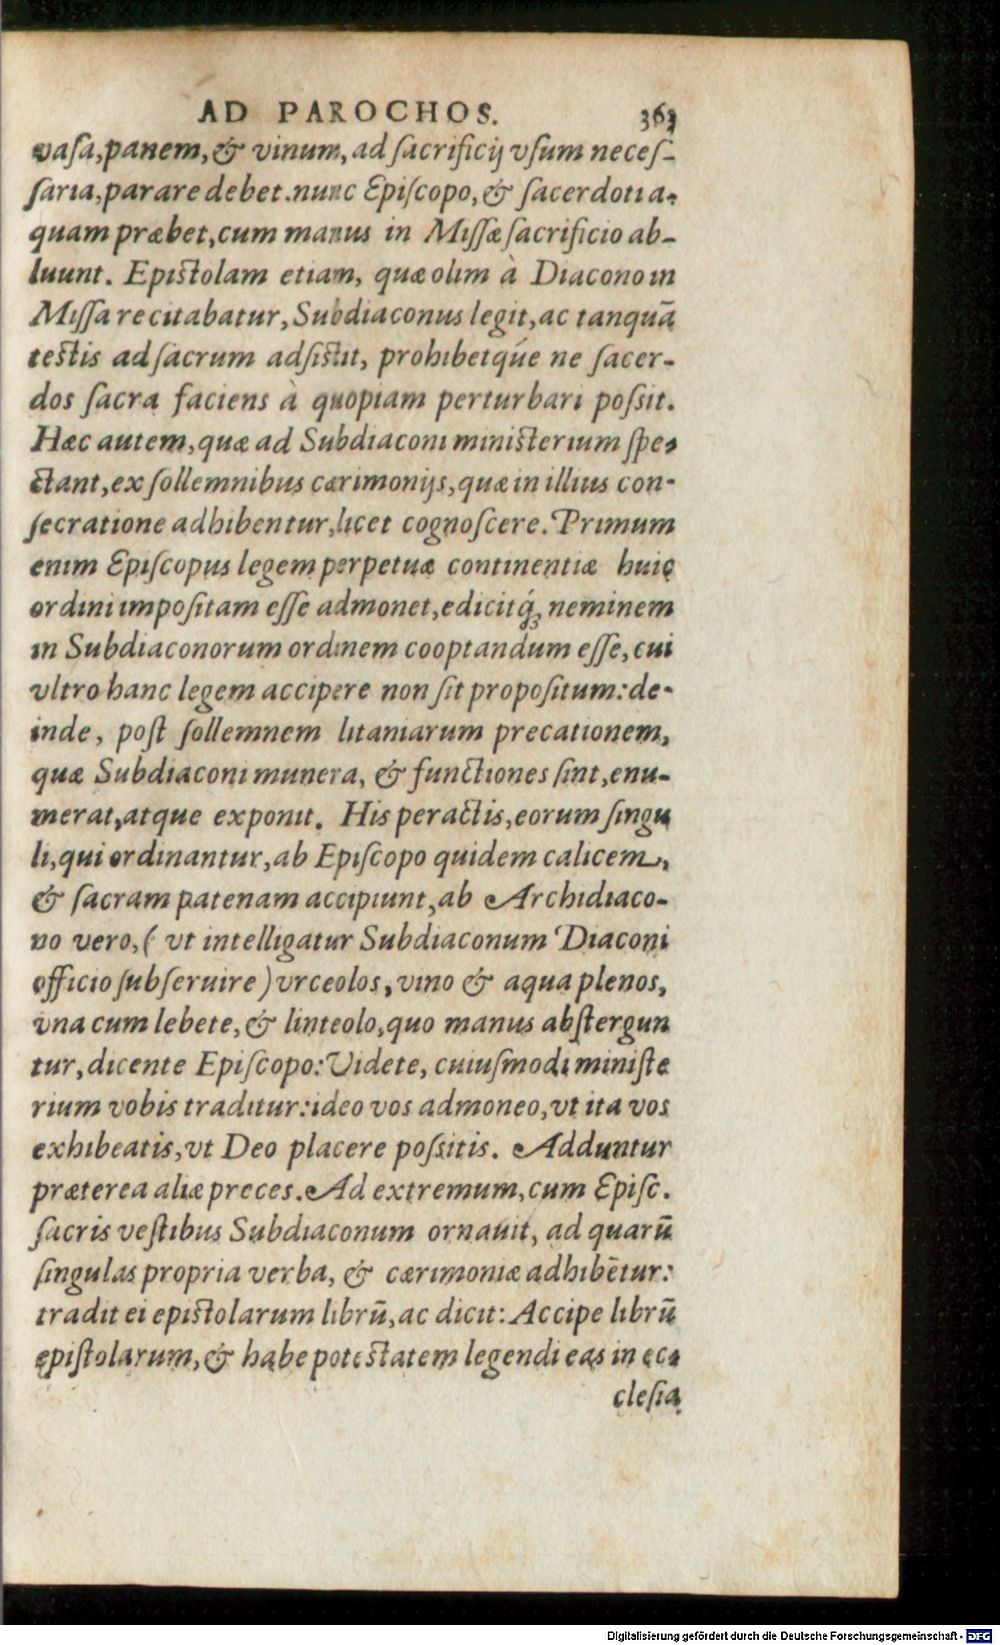 AD PAROCHOS. 363
vaſa,panem,& vinum,ad ſacrificij vſum neceſ-
ſaria,parare debet.nunc Epiſcopo,& ſacerdoti a-
quam præbet,cum manus in Miſſæ ſacrificio ab-
luunt. Epiſtolam etiam, quæ olim à Diacono in
Miſſa recitabatur,Subdiaconus legit,ac tanquã
teſtis ad ſacrum adſiſtit, prohibetq́ue ne ſacer-
dos ſacra faciens à quopiam perturbari poſsit.
Hæc autem,quæ ad Subdiaconi miniſterium ſpe-
ctant,ex ſollemnibus cærimonijs,quæ in illius con-
ſecratione adhibentur,licet cognoſcere.Primum
enim Epiſcopus legem perpetuæ continentiæ huic
ordini impoſitam eſſe admonet,edicitq́ꝫ neminem
in Subdiaconorum ordinem cooptandum eſſe,cui
vltro hanc legem accipere non ſit propoſitum:de-
inde, poſt ſollemnem litaniarum precationem,
quæ Subdiaconi munera, & functiones ſint,enu-
merat,atque exponit. His peractis,eorum ſingu
li,qui ordinantur,ab Epiſcopo quidem calicem,
& ſacram patenam accipiunt,ab Archidiaco-
no vero,( vt intelligatur Subdiaconum Diaconi
officio ſubſeruire)vrceolos,vino & aqua plenos,
vna cum lebete,& linteolo,quo manus abſtergun
tur,dicente Epiſcopo:Videte, cuiuſmodi miniſte
rium vobis traditur:ideo vos admoneo,vt ita vos
exhibeatis,vt Deo placere poſsitis. Adduntur
præterea aliæ preces.Ad extremum,cum Epiſc.
ſacris veſtibus Subdiaconum ornauit, ad quarũ
ſingulas propria verba, & cærimoniæ adhibẽtur:
tradit ei epiſtolarum librũ,ac dicit:Accipe librũ
epiſtolarum,& habe poteſtatem legendi eas in ec-
cleſia
Digitalisierung gefördert durch die Deutsche Forschungsgemeinschaft - DFG